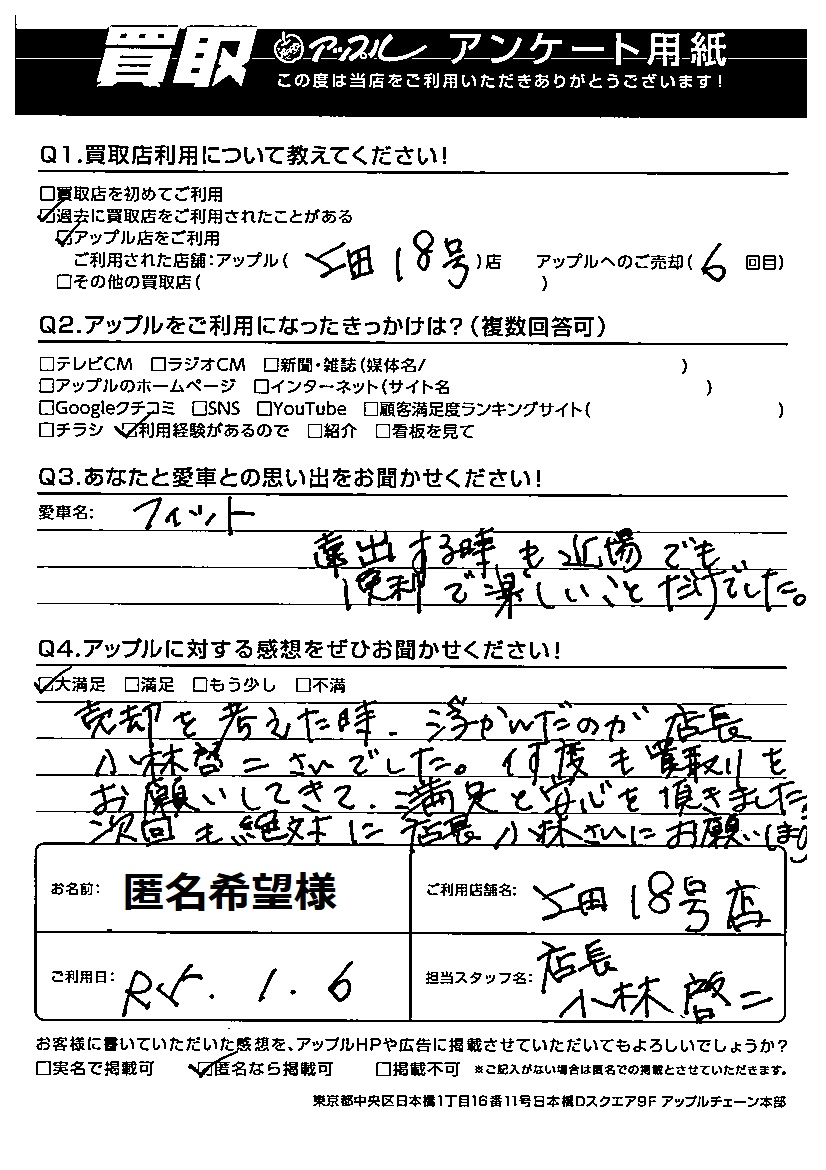 買取 アップル アンケート用紙
この度は当店をご利用いただきありがとうございます!
Q1.買取店利用について教えてください!
□買取店を初めてご利用
☑過去に買取店をご利用されたことがある
☑アップル店をご利用
ご利用された店舗:アップル( 上田18号 )店 アップルへのご売却( 6 回目)
□その他の買取店( )
Q2.アップルをご利用になったきっかけは?(複数回答可)
□テレビCM □ラジオCM □新聞・雑誌(媒体名/ )
□アップルのホームページ □インターネット(サイト名 )
□Googleクチコミ □SNS □YouTube □顧客満足度ランキングサイト( )
□チラシ ☑利用経験があるので □紹介 □看板を見て
Q3.あなたと愛車との思い出をお聞かせください!
愛車名: フィット
遠出する時も近場でも
便利で楽しいことだけでした。
Q4.アップルに対する感想をぜひお聞かせください!
☑大満足 □満足 □もう少し □不満
売却を考えた時、浮かんだのが店長
小林啓二さんでした。何度も買取りを
お願いしてきて、満足と安心を頂きました。
次回も絶対に店長小林さんにお願いします
お名前: 匿名希望様 ご利用店舗名: 上田18号店
ご利用日: R5.1.6 担当スタッフ名: 店長
小林啓二
お客様に書いていただいた感想を、アップルHPや広告に掲載させていただいてもよろしいでしょうか?
□実名で掲載可 ☑匿名なら掲載可 □掲載不可 ※ご記入がない場合は匿名での掲載とさせていただきます。
東京都中央区日本橋1丁目16番11号日本橋Dスクエア9F アップルチェーン本部